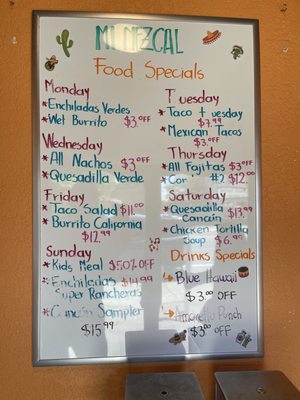 MI MEZCAL
Food Specials
Monday
* Enchiladas Verdes
* Wet Burrito $3.OFF
Tuesday
* Taco tuesday
$7.99
* Mexican Tacos
$3.OFF
Wednesday
* All Nachos $3OFF
* Quesadilla Verde
Thursday
* All Fajitas $3OFF
* #2 $12.00
Friday
* Taco Salad $11.00
* Burrito California
$12.99
Saturday
* Quesadilla
Cancún $13.99
* Chicken Tortilla
Soup $6.99
Sunday
* Kids Meal $50%OFF
* Enchiladas $14.99
Super Rancheras
* Cancún Sampler
$15.99
Drinks Specials
Blue Hawaii
$3.00 OFF
Amaretto Punch
$3.00 OFF